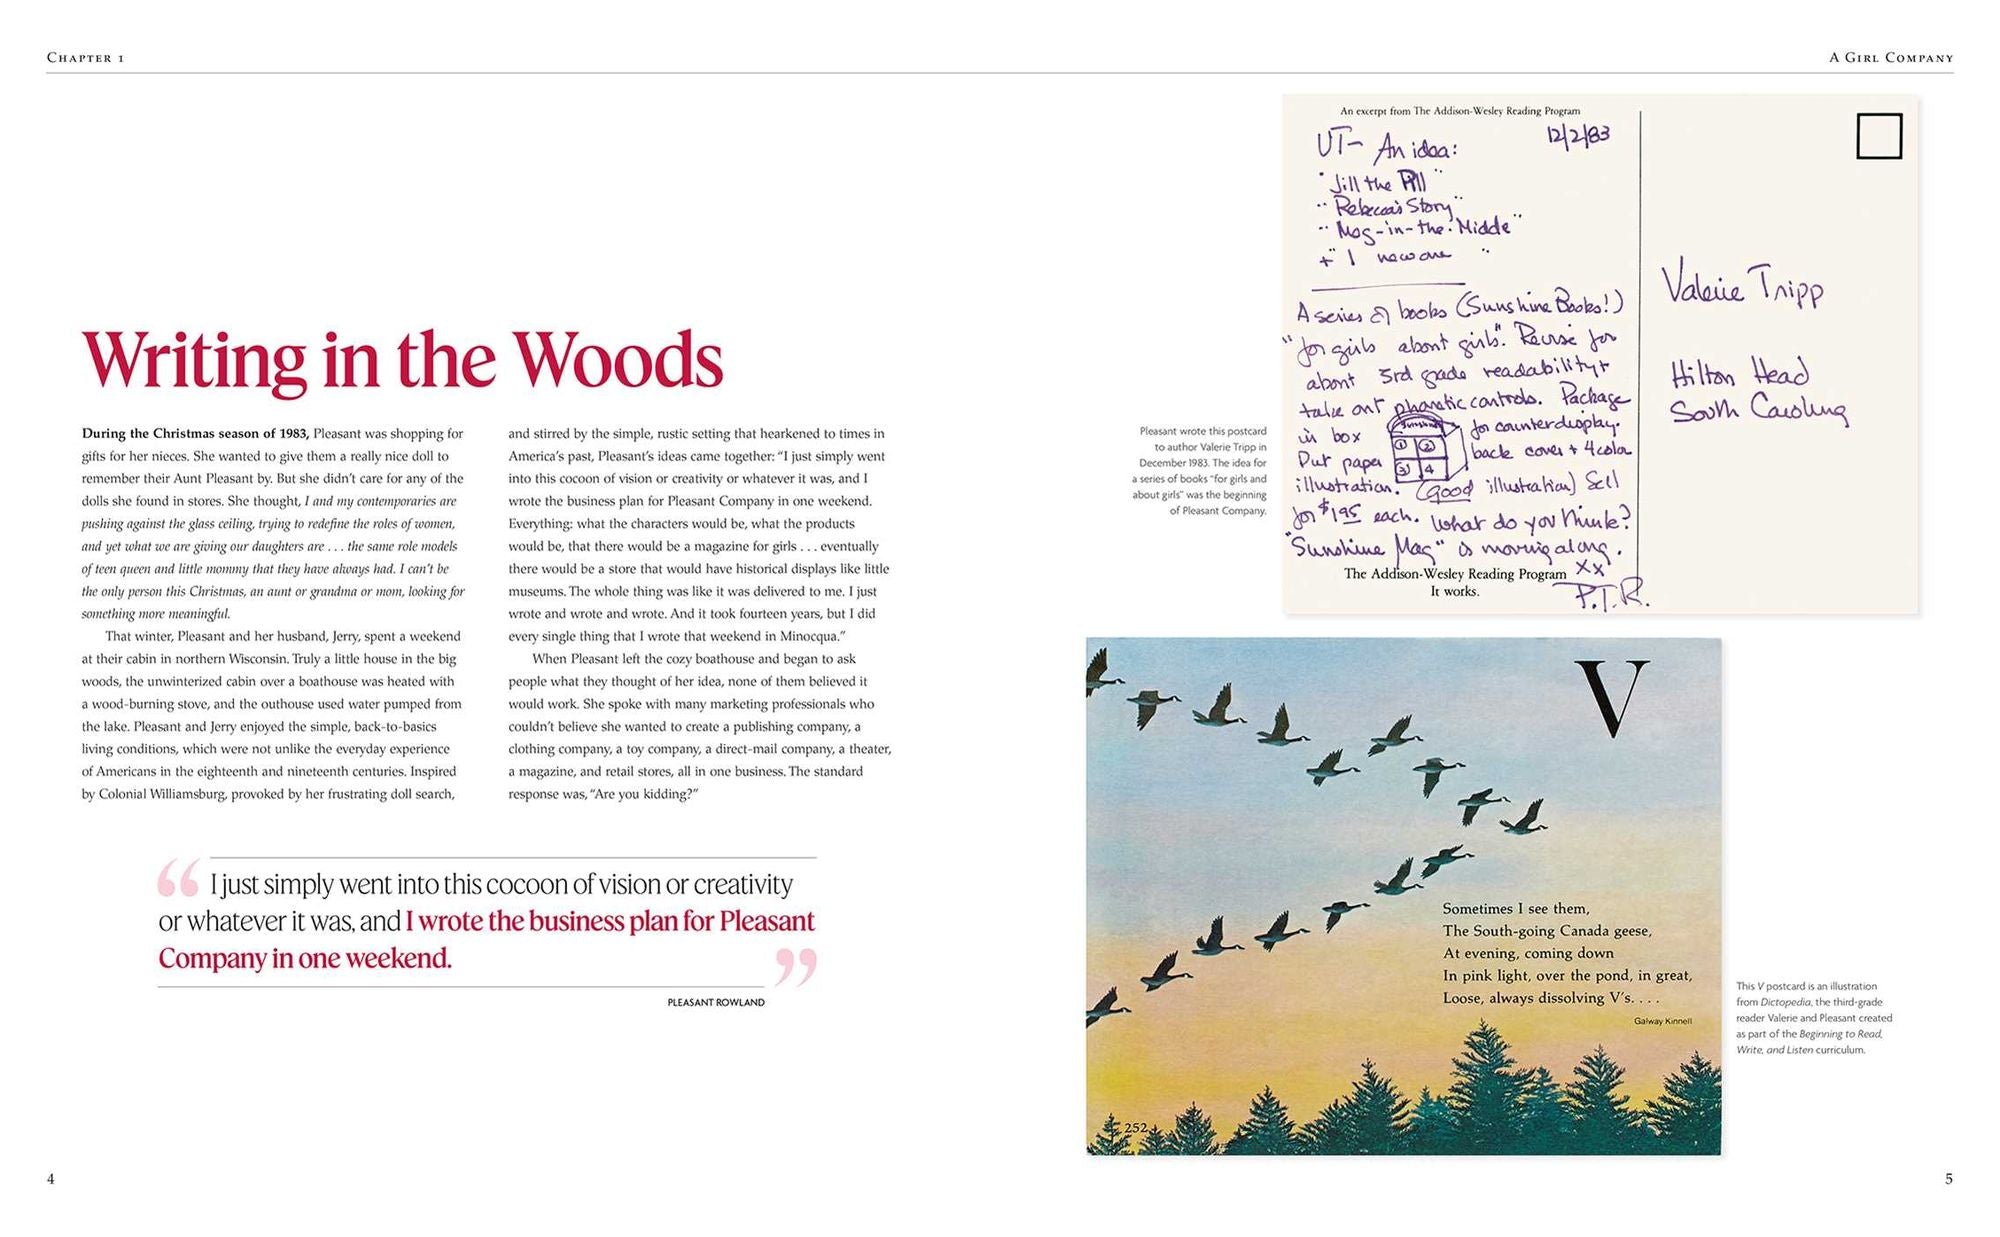 CHAPTER 1
A GIRL COMPANY
Writing in the Woods
During the Christmas season of 1983, Pleasant was shopping for
gifts for her nieces. She wanted to give them a really nice doll to
remember their Aunt Pleasant by. But she didn't care for any of the
dolls she found in stores. She thought, I and my contemporaries are
pushing against the glass ceiling, trying to redefine the roles of women,
and yet what we are giving our daughters are . . . the same role models
of teen queen and little mommy that they have always had. I can't be
the only person this Christmas, an aunt or grandma or mom, looking for
something more meaningful.
That winter, Pleasant and her husband, Jerry, spent a weekend
at their cabin in northern Wisconsin. Truly a little house in the big
woods, the unwinterized cabin over a boathouse was heated with
a wood-burning stove, and the outhouse used water pumped from
the lake. Pleasant and Jerry enjoyed the simple, back-to-basics
living conditions, which were not unlike the everyday experience
of Americans in the eighteenth and nineteenth centuries. Inspired
by Colonial Williamsburg, provoked by her frustrating doll search,
and stirred by the simple, rustic setting that hearkened to times in
America's past, Pleasant's ideas came together: "I just simply went
into this cocoon of vision or creativity or whatever it was, and I
wrote the business plan for Pleasant Company in one weekend.
Everything: what the characters would be, what the products
would be, that there would be a magazine for girls . . . eventually
there would be a store that would have historical displays like little
museums. The whole thing was like it was delivered to me. I just
wrote and wrote and wrote. And it took fourteen years, but I did
every single thing that I wrote that weekend in Minocqua."
When Pleasant left the cozy boathouse and began to ask
people what they thought of her idea, none of them believed it
would work. She spoke with many marketing professionals who
couldn't believe she wanted to create a publishing company, a
clothing company, a toy company, a direct-mail company, a theater,
a magazine, and retail stores, all in one business. The standard
response was, "Are you kidding?"
“I just simply went into this cocoon of vision or creativity
or whatever it was, and I wrote the business plan for Pleasant
Company in one weekend.”
PLEASANT ROWLAND
4
An excerpt from The Addison-Wesley Reading Program
12/2/83
VT- An idea:
"Jill the Pill"
"Rebecca's Story"
"Meg-in-the-Middle"
+ "1 new one"
A series of books (Sunshine Books!)
"for girls about girls". Revise for
about 3rd grade readability +
take out phonetic controls. Package
in box for counter display.
Sunshine
1 2
3 4
Put paper back cover + 4 color
illustration. (good illustration) Sell
for $1.95 each. What do you think?
"Sunshine Mag" is moving along.
XX
P.T.R.
The Addison-Wesley Reading Program
It works.
Valerie Tripp
Hilton Head
South Carolina
Pleasant wrote this postcard
to author Valerie Tripp in
December 1983. The idea for
a series of books "for girls and
about girls" was the beginning
of Pleasant Company.
V
Sometimes I see them,
The South-going Canada geese,
At evening, coming down
In pink light, over the pond, in great,
Loose, always dissolving V's. . . .
Galway Kinnell
252
This V postcard is an illustration
from Dictopedia, the third-grade
reader Valerie and Pleasant created
as part of the Beginning to Read,
Write, and Listen curriculum.
5